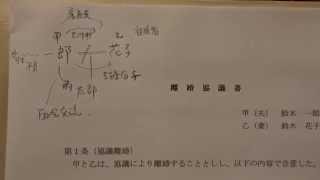 甲 乙
一郎 花子
太郎
面会交流
離婚協議書
甲(夫) 鈴木 一郎
乙(妻) 鈴木 花子
第1条(協議離婚)
甲と乙は、協議により離婚することとし、以下の内容で合意した。